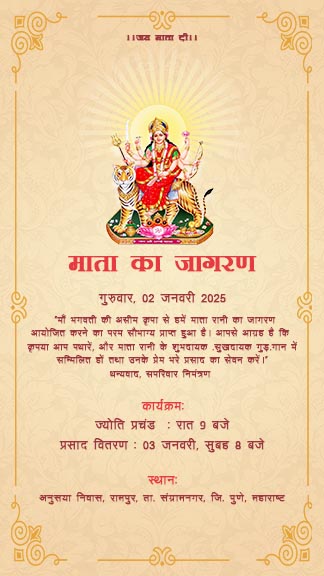 ।।जय माता दी।।
माता का जागरण
गुरुवार, 02 जनवरी 2025
"माँ भगवती की असीम कृपा से हमें माता रानी का जागरण
आयोजित करने का परम सौभाग्य प्राप्त हुआ है। आपसे आग्रह है कि
कृपया आप पधारें, और माता रानी के शुभदायक ,सुखदायक गुड़.गान में
सम्मिलित हों तथा उनके प्रेम भरे प्रसाद का सेवन करें।"
धन्यवाद, सपरिवार निमंत्रण
कार्यक्रम:
ज्योति प्रचंड : रात 9 बजे
प्रसाद वितरण : 03 जनवरी, सुबह 8 बजे
स्थान:
अनुसया निवास, रामपुर, ता. संग्रामनगर, जि. पुणे, महाराष्ट